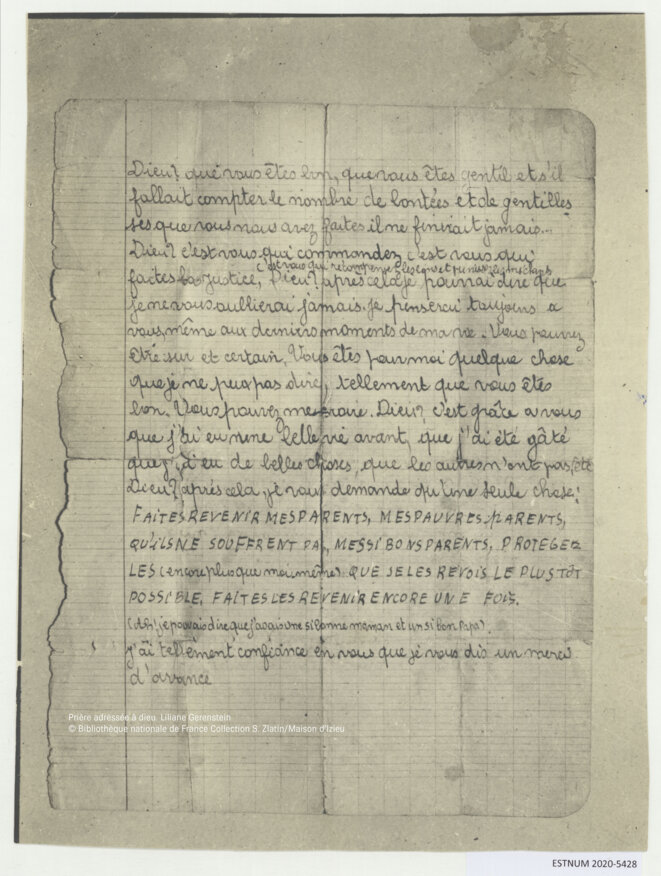 Dieu? que vous êtes bon, que vous êtes gentil et s'il
fallait compter le nombre de bontées et de gentilles
ses que vous nous avez faites il ne finirait jamais...
Dieu? c'est vous qui commandez c'est vous qui
c'est vous qui récompensez les bons et punissez les méchants
faites la justice, Dieu? après cela je pourrai dire que
je ne vous oublierai jamais. Je penserai toujours a
vous, même aux derniers moments de ma vie. Vous pouvez
être sur et certain. Vous êtes pour moi quelque chose
que je ne peux pas dire, tellement que vous êtes
bon. Vous pouvez me croire. Dieu? c'est grâce a vous
que j'ai eu une belle vie avant, que j'ai été gâté
que j'ai eu de belles choses, que les autres n'ont pas,
Dieu? après cela, je vous demande qu'une seule chose:
FAITES REVENIR MES PARENTS, MES PAUVRES PARENTS,
QU'ILS NE SOUFFRENT PAS, MES SI BONS PARENTS, PROTEGEZ
LES (encore plus que moi-même) QUE JE LES REVOIS LE PLUS TÔT
POSSIBLE, FAITES LES REVENIR ENCORE UNE FOIS.
(Ah! je pouvais dire que j'avais une si bonne maman et un si bon Papa).
j'ai tellement confiance en vous que je vous dis un merci
d'avance
Prière adressée à dieu. Liliane Gerenstein
© Bibliothèque nationale de France Collection S. Zlatin/Maison d'Izieu
ESTNUM 2020-5428